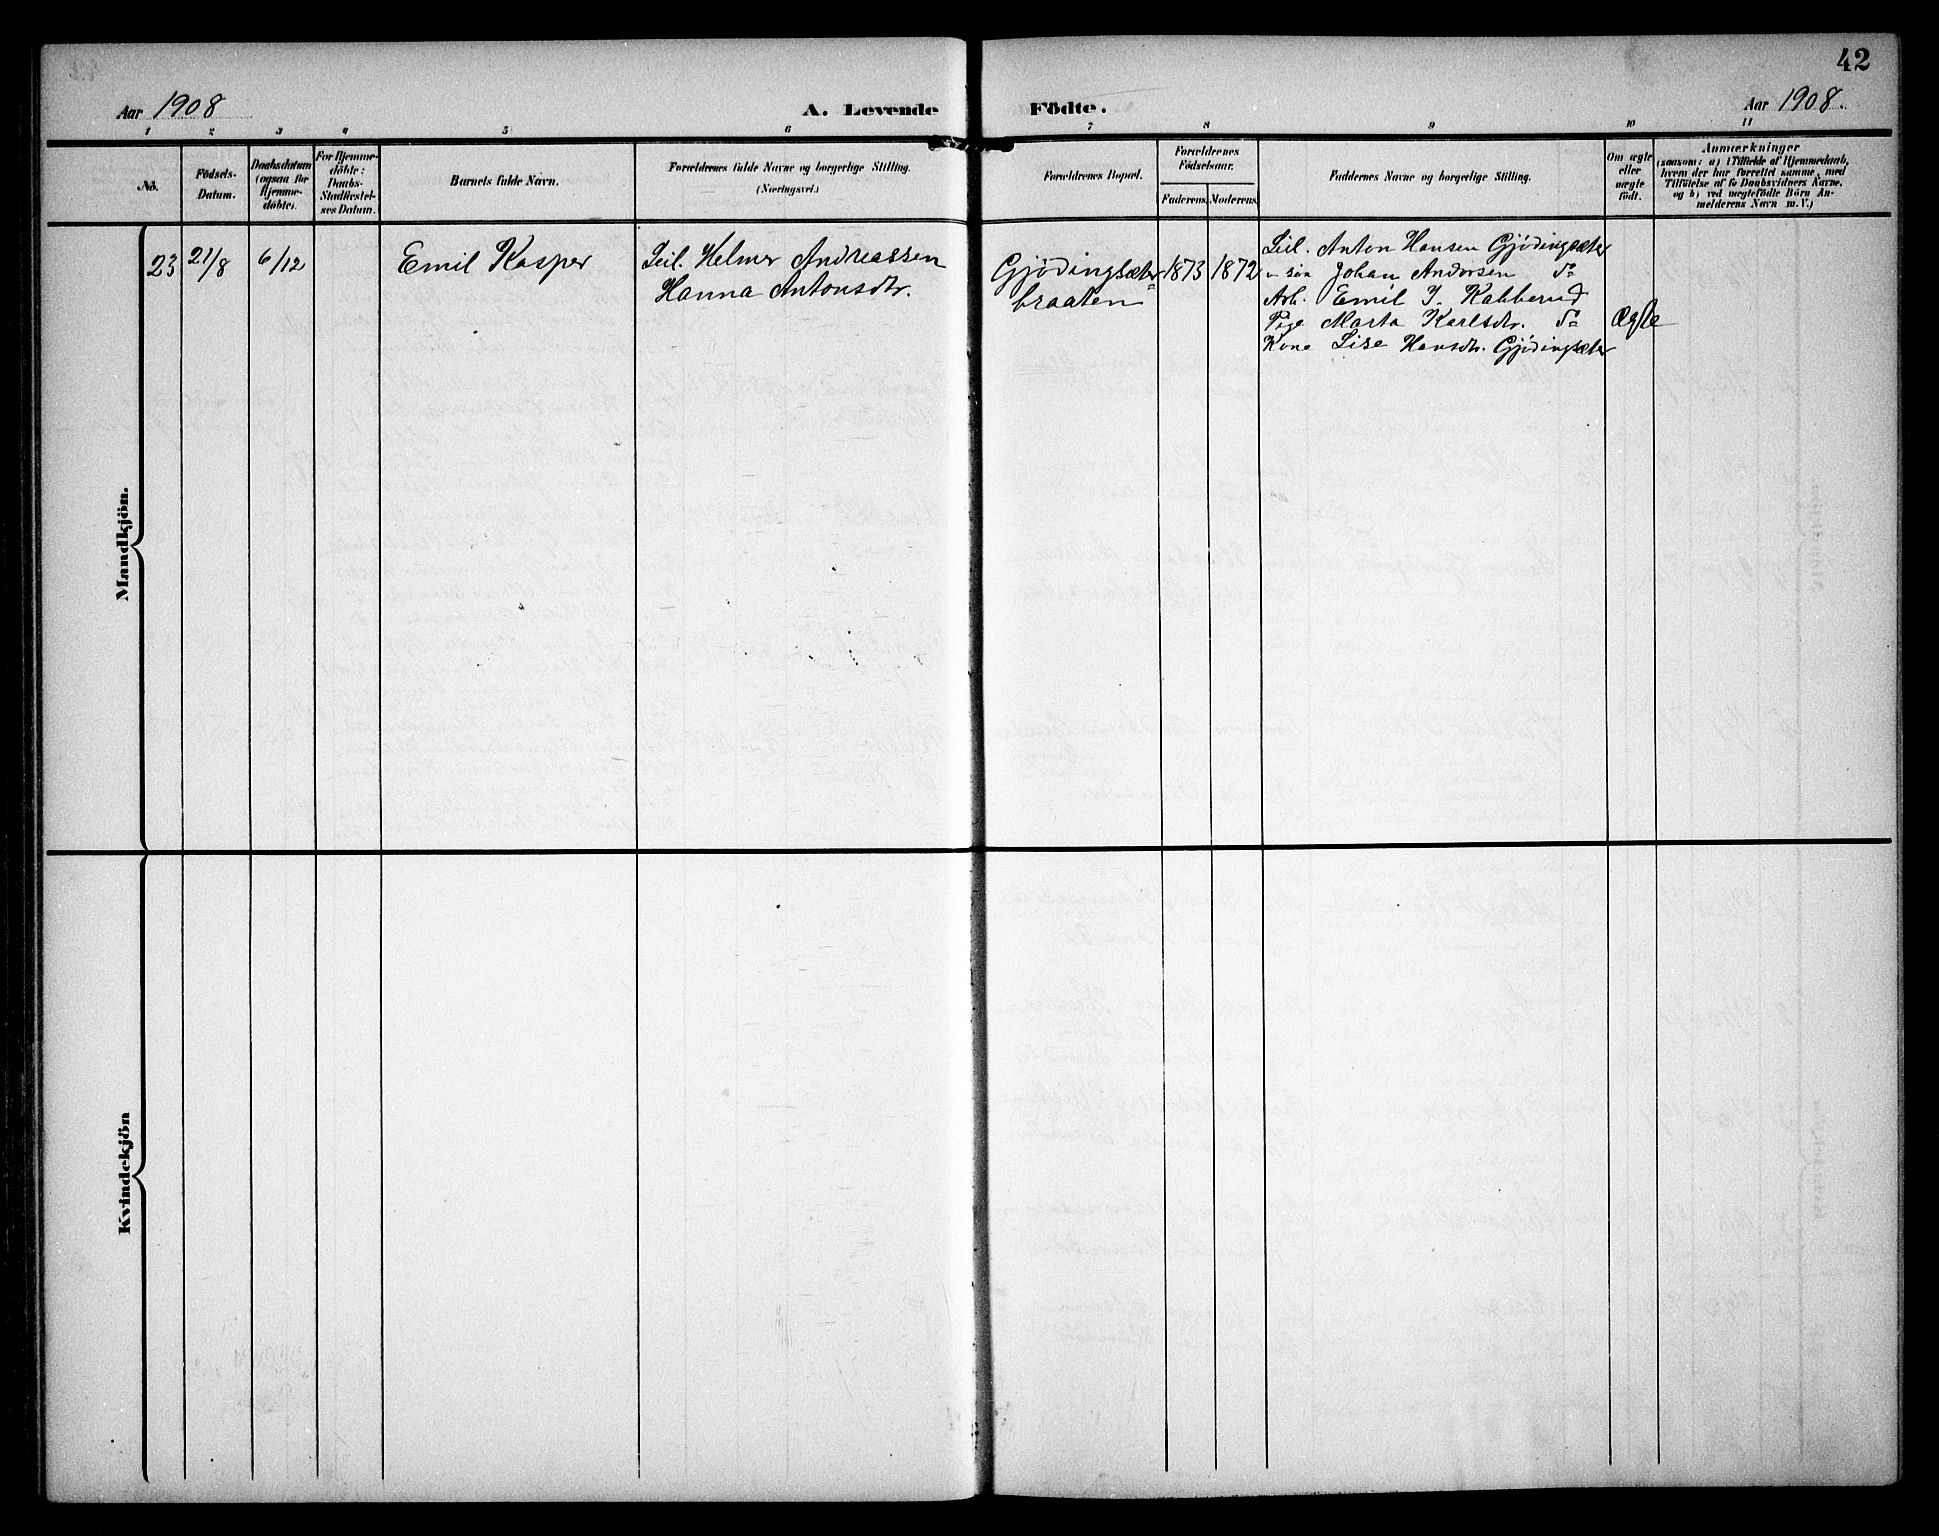 42
Aar 1908
A. Levende Födte.
Aar 1908.
1 2 3 4 5 6 7 8 9 10 11
No.
Födsels-
Datum.
Daabsdatum
(ogsaa for
Hjemme-
döbte).
For Hjemme-
döbte:
Daabs-
Stadfæstel-
ses Datum.
Barnets fulde Navn.
Forældrenes fulde Navne og borgerlige Stilling.
(Næringsvei.)
Forældrenes Bopæl.
Forældrenes
Födselsaar.
Faderens.
Moderens.
Faddernes Navne og borgerlige Stilling.
Om ægte
eller
uægte
födt.
Anmærkninger
(saasom: a) i Tilfælde af Hjemmedaab,
hvem der har forrettet samme, med
Tilföielse af to Daabsvidners Navne,
og b) ved uægtefödte Börn An-
melderens Navn m. V.)
Mandkjön.
23
21/8
6/12
Emil Kasper
Leil. Helmer Andreassen
Hanna Antonsdtr.
Gjödingsæter-
braaten
1873
1872
Leil. Anton Hansen Gjödingsæter
" søn Johan Andorsen do
Arb. Emil J. Kabberud
Pige Marta Karlsdtr. do
Kone Lise Hansdtr. Gjödingsæter
Ægte
Kvindekjön